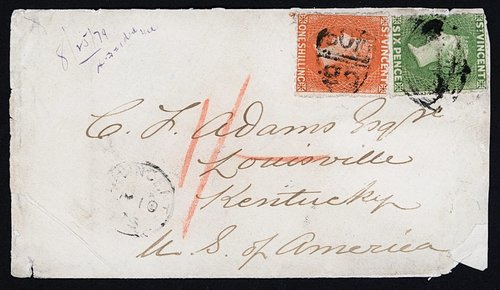 8/25/79
ONE SHILLING
ST VINCENT
SIX PENCE
ST VINCENT
C. F. Adams Esqre
Louisville
Kentucky
U. S. of America
1/-